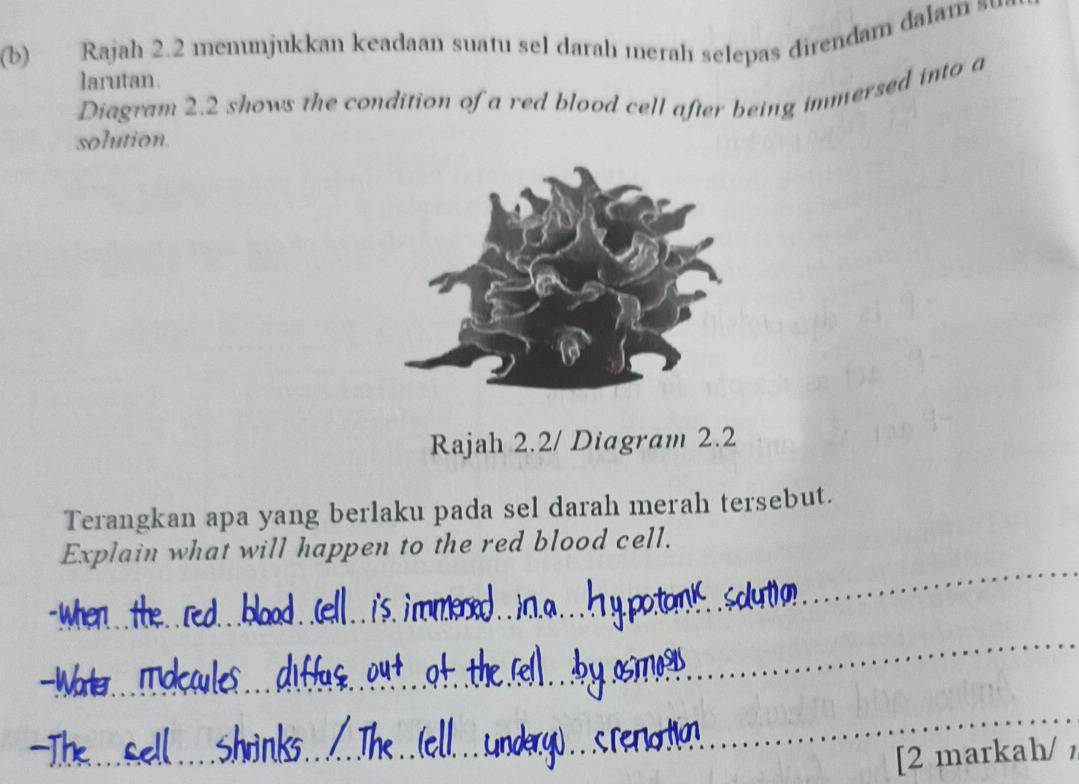 (b) Rajah 2.2 menunjukkan keadaan suatu sel darah merah selepas direndam dalam
larutan.
Diagram 2.2 shows the condition of a red blood cell after being immersed into a
solution.
Rajah 2.2/ Diagram 2.2
Terangkan apa yang berlaku pada sel darah merah tersebut.
Explain what will happen to the red blood cell.
-When the red blood cell is immersed in a hypotonic solution
-Water molecules diffuse out of the cell by osmosis
-The cell shrinks / The cell undergo crenation
[2 markah/